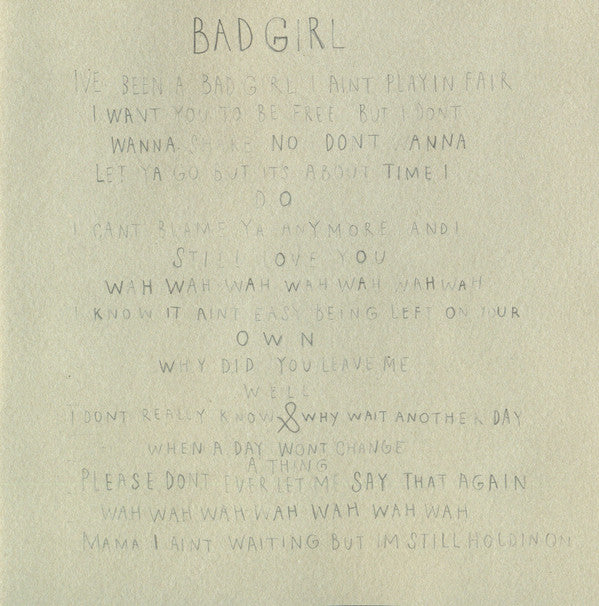 BAD GIRL
I'VE BEEN A BAD GIRL I AINT PLAYIN FAIR
I WANT YOU TO BE FREE BUT I DONT
WANNA SHARE NO DONT WANNA
LET YA GO BUT ITS ABOUT TIME I
DO
I CANT BLAME YA ANYMORE AND I
STILL LOVE YOU
WAH WAH WAH WAH WAH WAH WAH
I KNOW IT AINT EASY BEING LEFT ON YOUR
OWN
WHY DID YOU LEAVE ME
WELL
I DONT REALLY KNOW & WHY WAIT ANOTHER DAY
WHEN A DAY WONT CHANGE
A THING
PLEASE DONT EVER LET ME SAY THAT AGAIN
WAH WAH WAH WAH WAH WAH WAH
MAMA I AINT WAITING BUT IM STILL HOLDIN ON